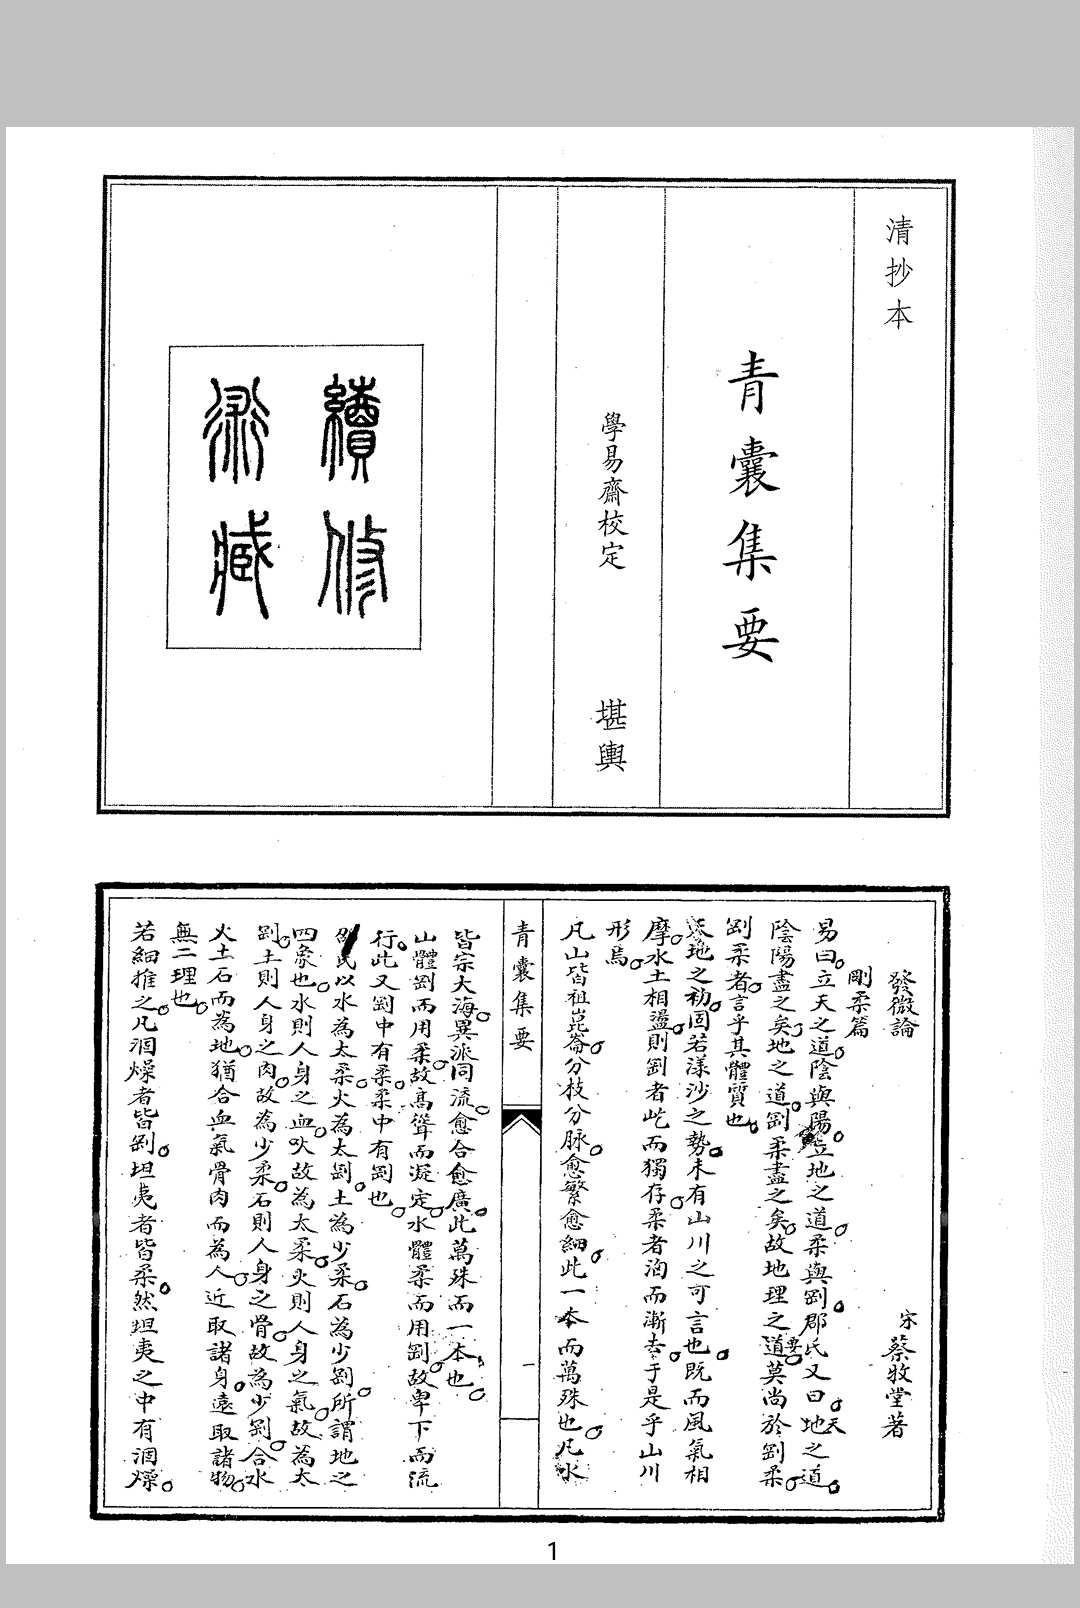 清抄本
青囊集要
學易齋校定
堪輿
續修
術藏
發微論
宋 蔡牧堂著
剛柔篇
易曰立天之道陰與陽立地之道柔與剛邵氏又曰天地之道
陰陽盡之矣地之道剛柔盡之矣故地理之道要莫尚於剛柔
剛柔者言乎其體質也
天地之初固若漾沙之勢未有山川之可言也既而風氣相
摩水土相盪則剛者屹而獨存柔者淘而漸去于是乎山川
形焉
凡山皆祖崑崙分枝分脉愈繁愈細此一本而萬殊也凡水
青囊集要
一
皆宗大海異派同流愈合愈廣此萬殊而一本也
山體剛而用柔故高聳而凝定水體柔而用剛故卑下而流
行此又剛中有柔柔中有剛也
邵氏以水為太柔火為太剛土為少柔石為少剛所謂地之
四象也水則人身之血故為太柔火則人身之氣故為太
剛土則人身之肉故為少柔石則人身之骨故為少剛合水
火土石而為地猶合血氣骨肉而為人近取諸身遠取諸物
無二理也
若細推之凡涸燥者皆剛坦夷者皆柔然坦夷之中有涸燥
1